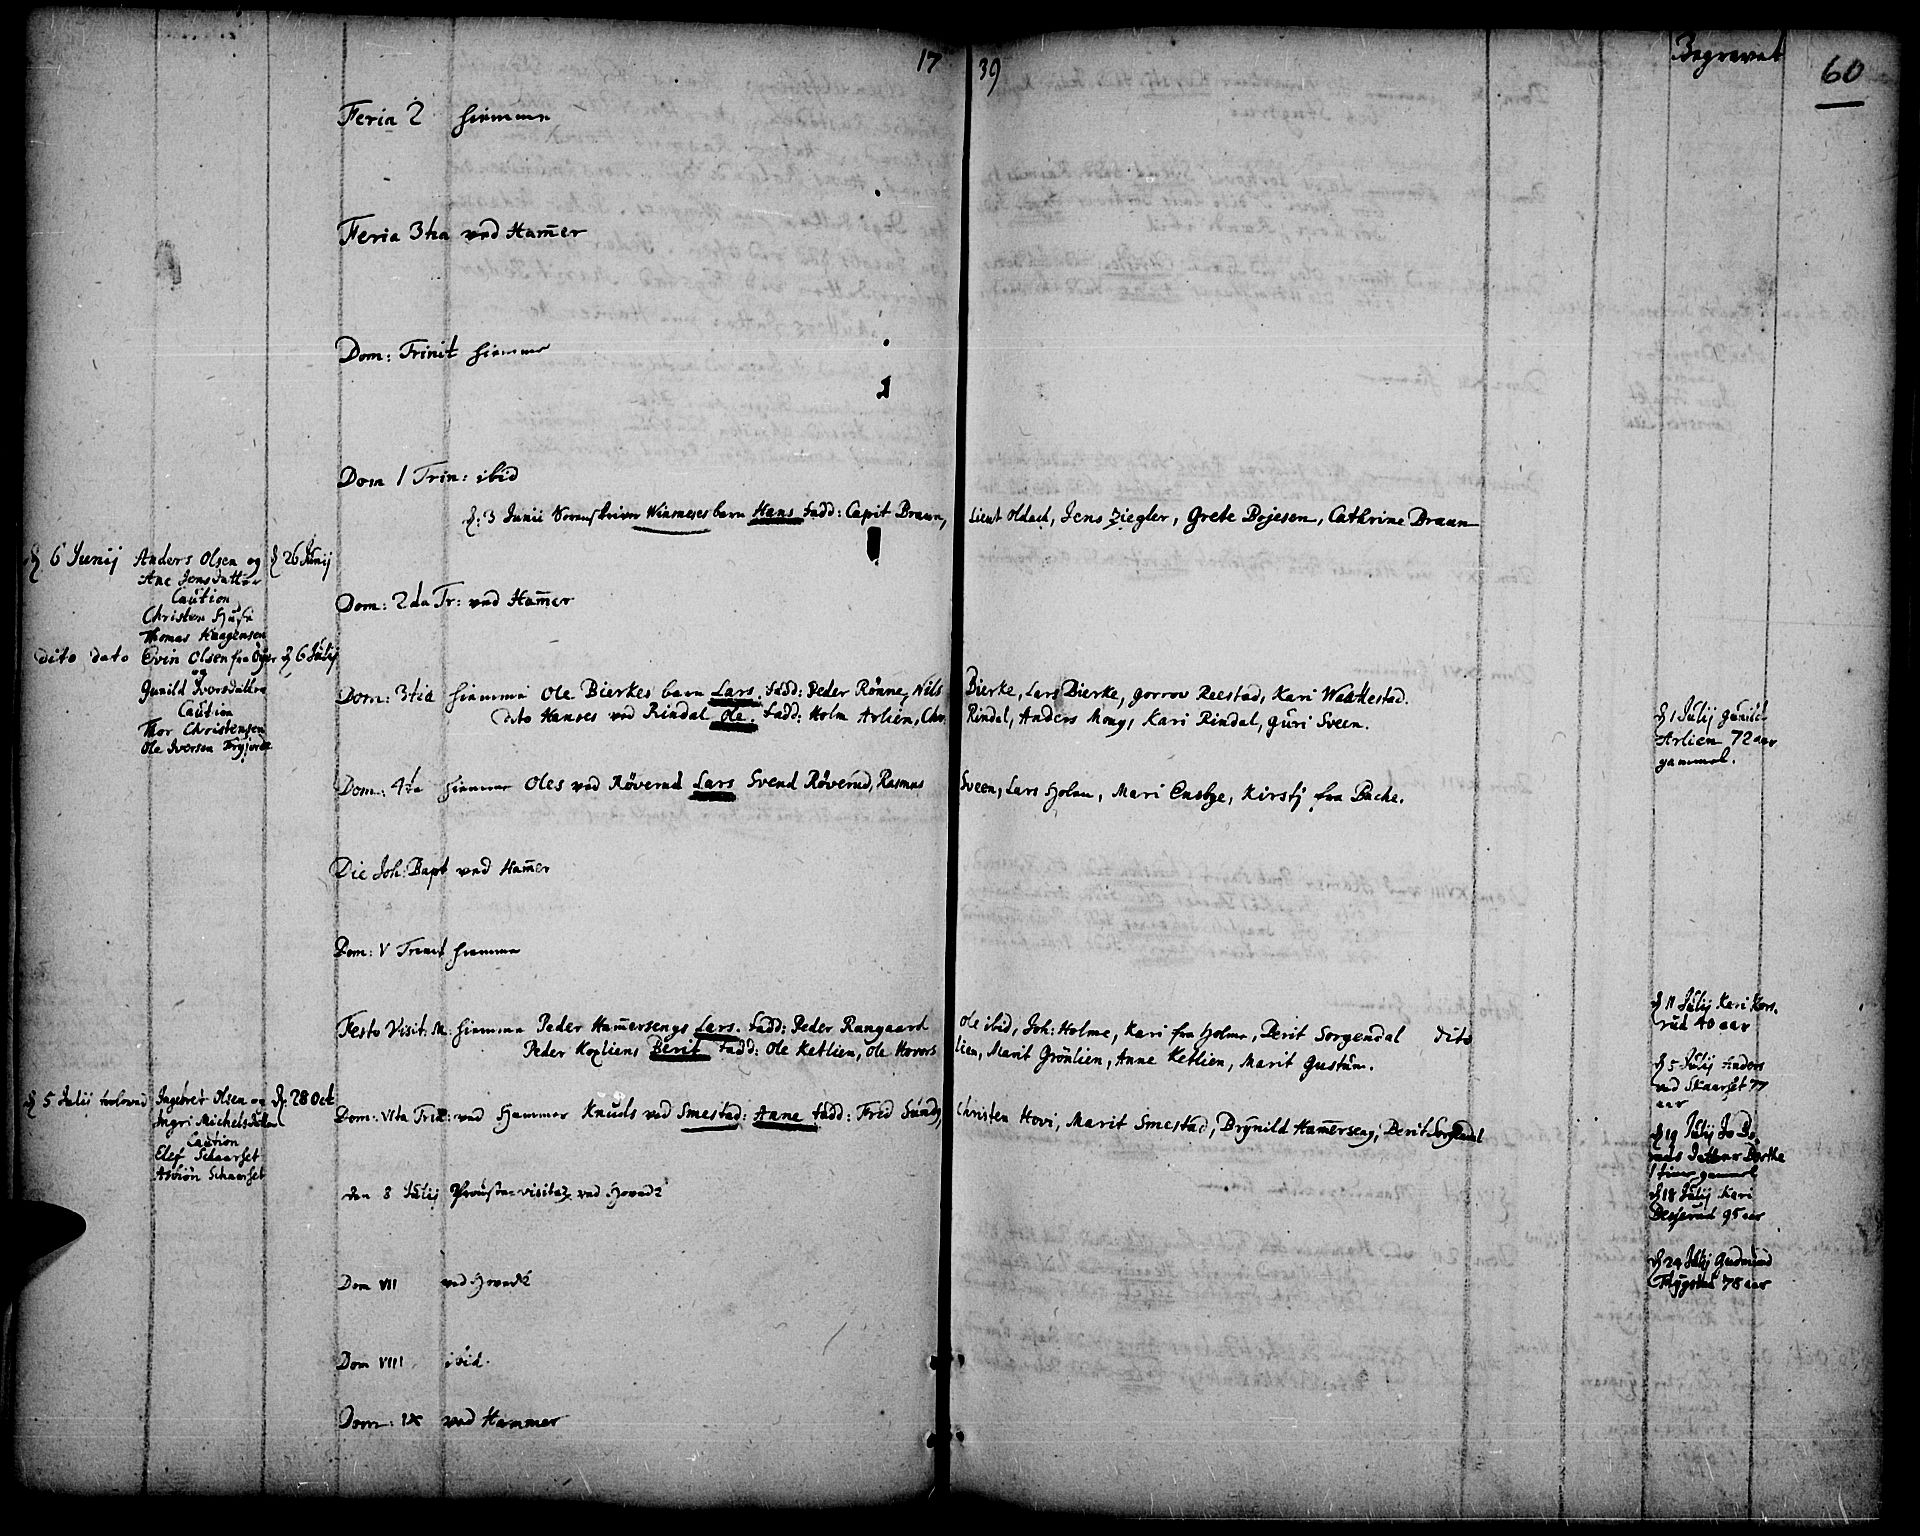 17 39
Begravet
60
Feria 2 hiemme
Feria 3tia ved Ham̄er
Dom: Trinit hiemme
Dom 1 Trin: ibid
d: 3 Junii Sorenskriver Wiemeses barn Hans fadd: Capit Braun, Lieut Oldach, Jens Ziegler, Grete Bojesen, Cathrine Braun
d 6 Junij Anders Olsen og d 26 Junij
Ane Jensdatter
Caution
Christen
Thomas Haagensen
Dom: 2da Tr: ved Ham̄er
dito dato Evin Olsen fra Øyer d 6 Julij
og
Gunild Iversdatter
Caution
Thor Christensen
Ole Iversen
Dom: 3tia hiemme Ole Bierkes barn Lars. fadd: Peder Rønne, Nils Bierke, Lars Bierke, gorrov Reestad, Kari
dito Hanses ved Rindal Ole. fadd: Holm Arlien, Chr. Rindal, Anders Moug, Kari Rindal, Guri Sveen.
d 1 Julij Gunild
Arlien 72 aar
gammel.
Dom: 4ta hiemme Oles ved Røverud Lars Svend Røverud, Rasmus Sveen, Lars Holm, Mari Ensbye, Kirstj fra Bache.
Die Joh: Bapt ved Ham̄er
Dom: V Trinit hiemme
Festo Visit: M: hiemme Peder Ham̄ersengs Lars. fadd: Peder Rangaard Ole ibid, Joh: Holme, Kari fra Holme, Berit Sorgendal dito
Peder Kopliens Berit fadd: Ole Ketlien, Ole Hovors lien, Marit Grönlien, Anne Ketlien, Marit Gustum.
d 11 Julij Kari Kors.
rud 40 aar
d 5 Julij Anders
ved Skaarset 77
aar
d 5 Julij trolovad Ingebret Olsen og d. 28 Oct
Ingri Michelsdatter
Caution
Elef Schaarset
Asbiön Schaarset
Dom: VIta Trin: ved Hammer Knuds ved Smestad: Anne fadd: Fred Sundj, Christen Hovi, Marit Smestad, Brynild Ham̄erseng, Berit Sorgendal
d 19 Julij
datter Berthe
gammel
d 18 Julij Kari
95 aar
den 8 Julij Prouste-visitaz ved Hoved
Dom VII ved Hoved
d 24 Julij Gudmund
78 aar
Dom VIII ibid.
Dom: IX ved Hammer